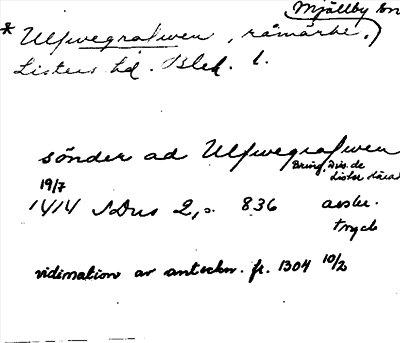 Mjällby sn
* Ulfwegrafwen, råmärke.
Listers hd. Blek. l.
sönder ad Ulfwegrafwen
Bring. Div. de
Lister härad
19/7
1414 SDns 2, s. 836 avskr.
tryck
vidimation av anteckn. fr. 1304 10/2